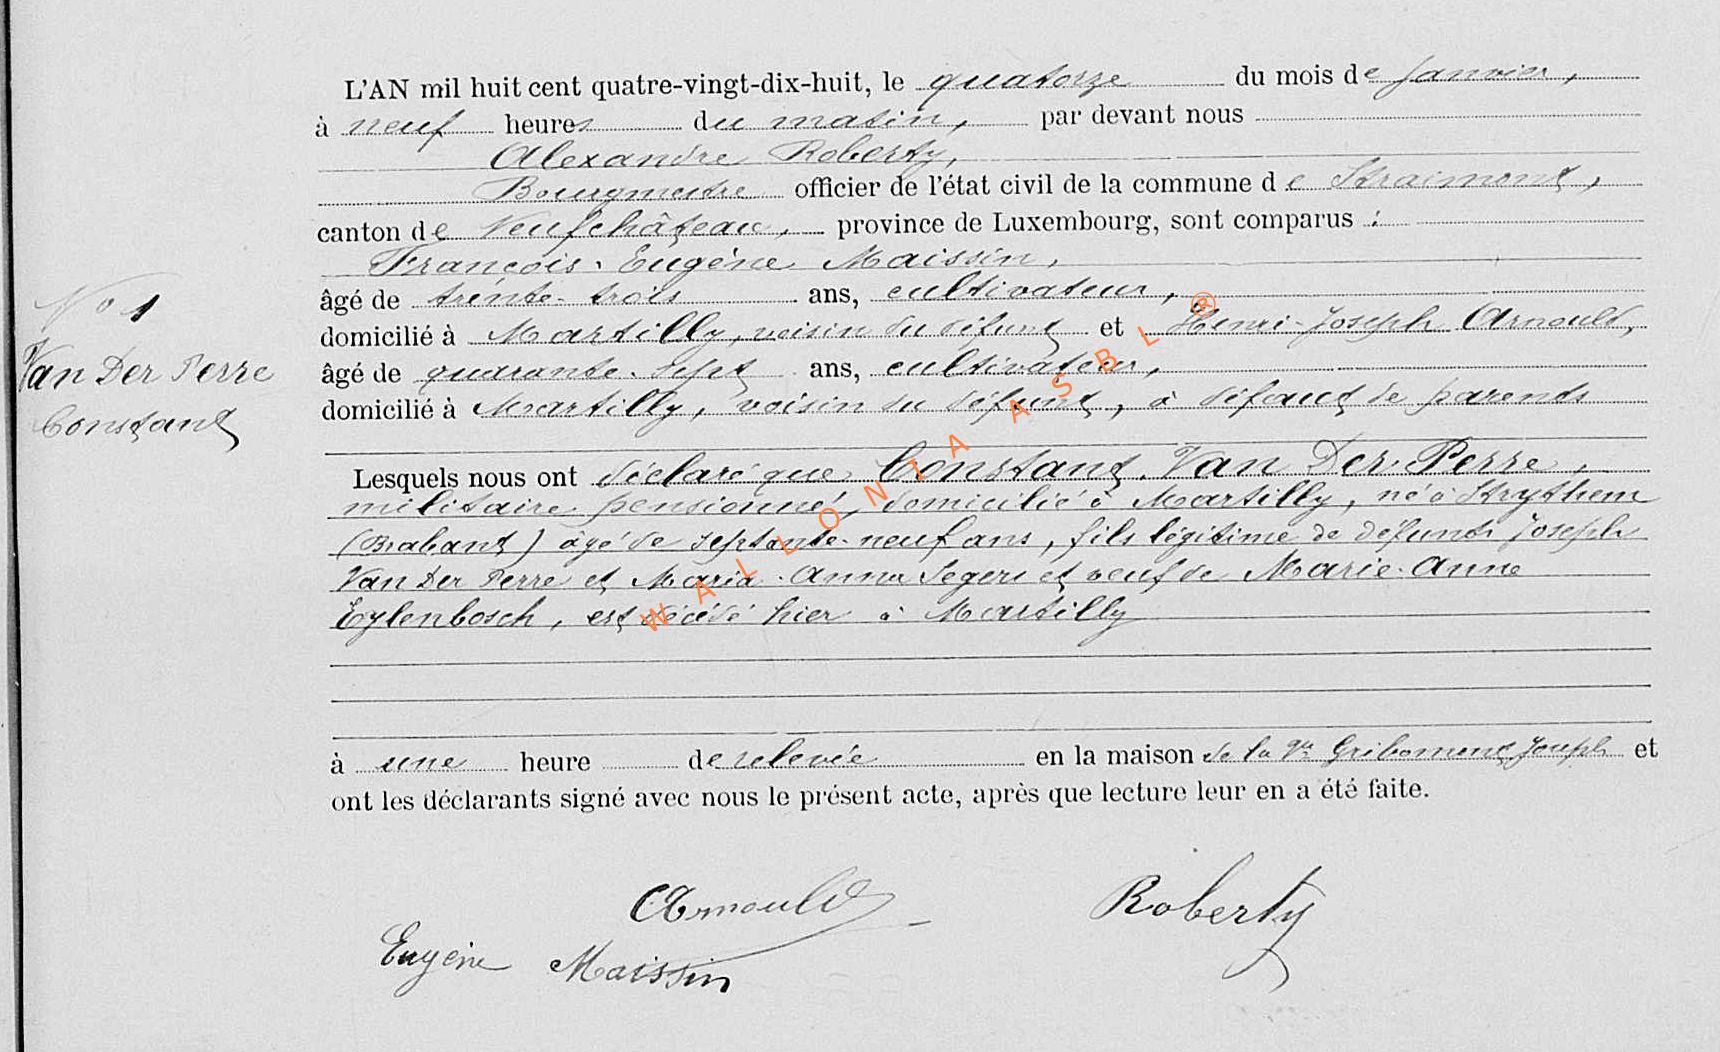 L'AN mil huit cent quatre-vingt-dix-huit, le quatorze du mois de Janvier,
à neuf heures du matin, par devant nous
Alexandre Roberty,
Bourgmestre officier de l'état civil de la commune de Straimont,
canton de Neufchâteau, province de Luxembourg, sont comparus :
François-Eugène Maissin,
âgé de trente-trois ans, cultivateur,
domicilié à Martilly, voisin du défunt et Henri-Joseph Arnould,
âgé de quarante-sept ans, cultivateur,
domicilié à Martilly, voisin du défunt, à défaut de parents
N° 1
Van Der Perre
Constant
Lesquels nous ont déclaré que Constant Van Der Perre,
militaire pensionné, domicilié à Martilly, né à Strythem
(Brabant) âgé de septante-neuf ans, fils légitime de défunts Joseph
Van Der Perre et Maria-Anna Segers et veuf de Marie-Anne
Eylenbosch, est décédé hier à Martilly
à une heure de relevée en la maison de la Ve Gribomont Joseph et
ont les déclarants signé avec nous le présent acte, après que lecture leur en a été faite.
Arnould
Roberty
Eugène Maissin
WALLONIA ASBL ®